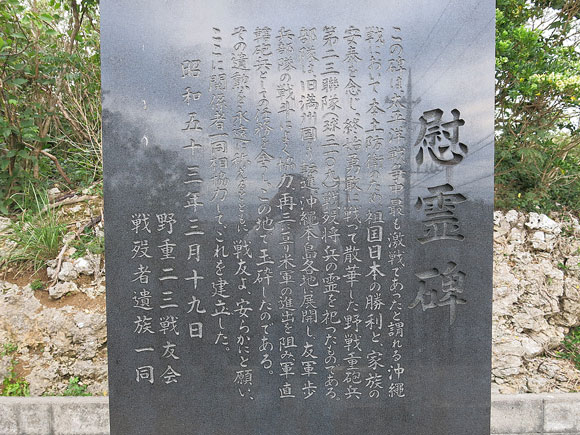 慰霊碑
この碑は太平洋戦争中最も激戦であったと謂れる沖縄
戦において本土防衛のため祖国日本の勝利と家族の
安泰を念じ終始勇敢に戦って散華した野戦重砲兵
第二三聯隊(球三一〇九)戦歿将兵の霊を祀ったものである。
部隊は旧満州国 沖縄本島各地展開し友軍歩
兵部隊の戦斗に 協力、再三 米軍の進出を阻み軍直
轄砲兵としての任務を全 この地で玉砕したのである。
その遺勲を永遠に称えるとともに戦友よ、安らかにと願い、
ここに 同相協力してこれを建立した。
昭和五十三年三月十九日
野重二三戦友会
戦歿者遺族一同